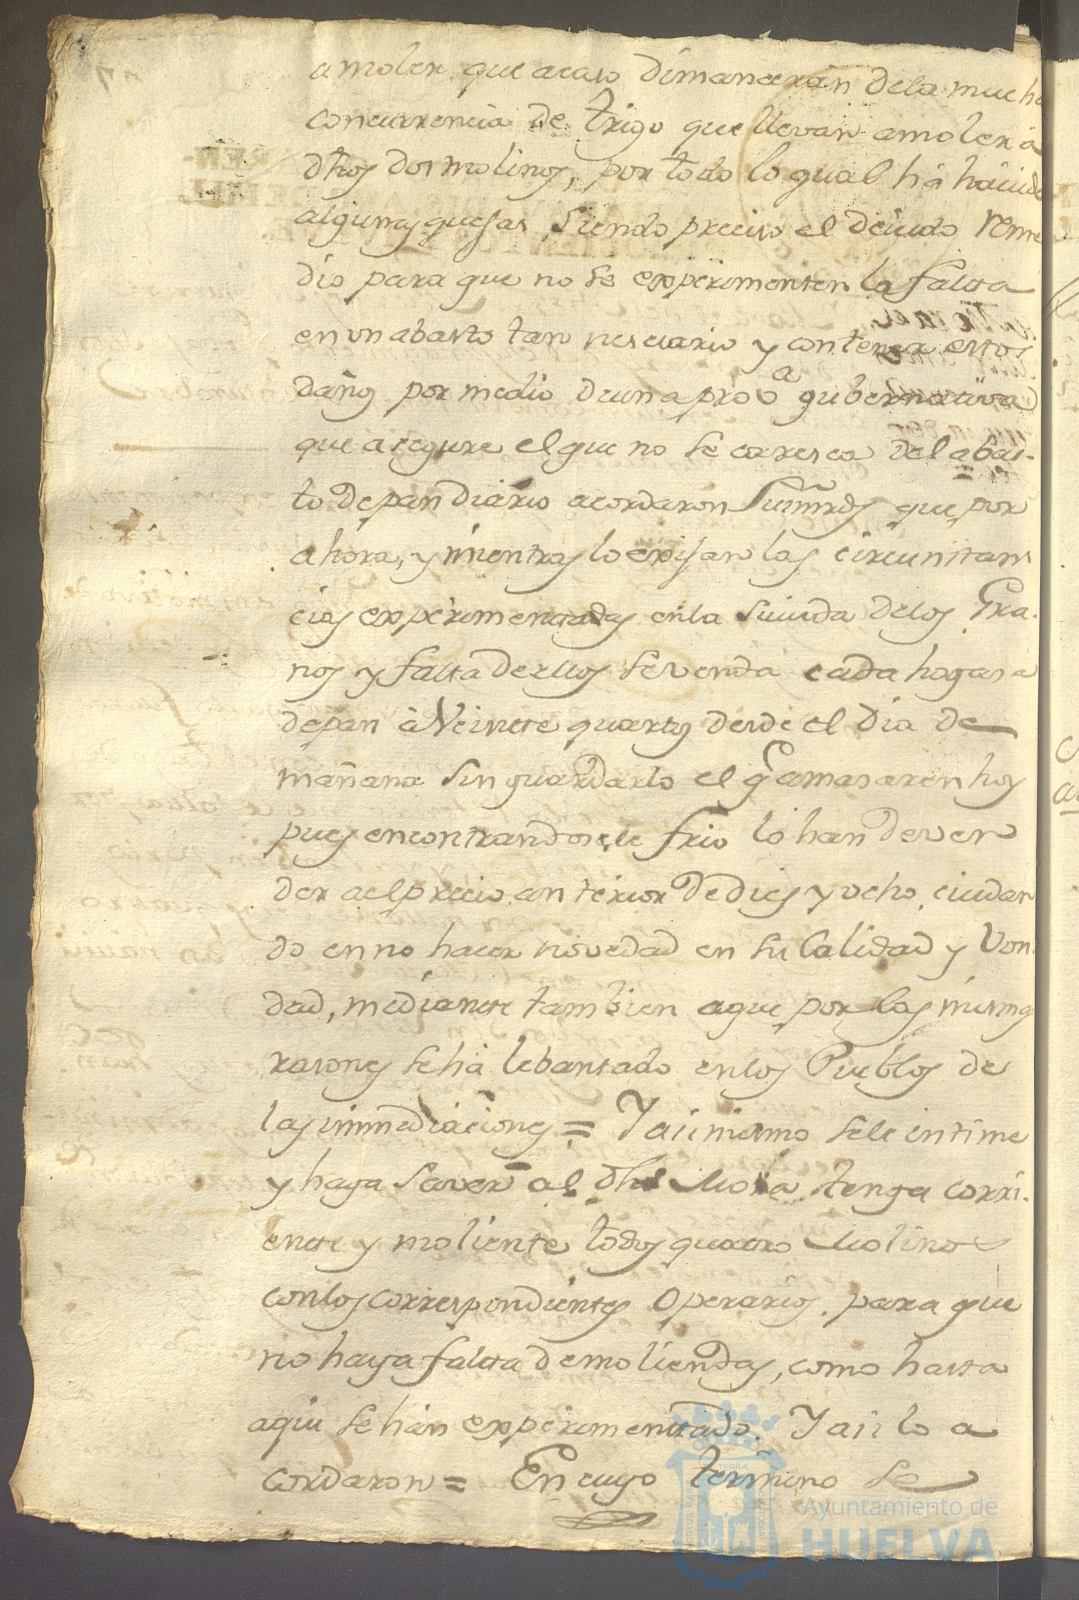 amoler que acaso dimanarán dela mucha
concurrencia de trigo que llevan amoler à
dhos dos molinos, por todo lo qual há havido
algunas quejas siendo preciso el devido reme
dio para que no se experimenten la falta
en un abasto tan nesesario y contenga estos
daños por medio de una provª gubernativa
que asegure el que no se caresca del abas-
to de pan diario acordaron Sus mrds que por
ahora, y mientras lo exijan las circunstan
cias experimentadas en la suvida delos Gra-
nos y falta de ellos se venda cada hogasa
de pan à Veinte quartos desde el dia de
mañana sin guardarlo el q amasaren hoy
pues encontrandosele frio lo han de ven
der a el precio anterior de dies y ocho, cuidan
do en no hacer novedad en su Calidad y Von-
dad, mediante tambien aque por las mismas
rasones se há lebantado en los Pueblos de
las immediaciones = Y asi mismo se le intime
y haga saver al dho Mora tenga corri-
ente y moliente todos quatro Molinos
con los correspondientes Operarios para que
no haya falta de moliendas, como hasta
aqui se han experimentado. Y asi lo a
cordaron = En cuyo termino se
Ayuntamiento de
HUELVA